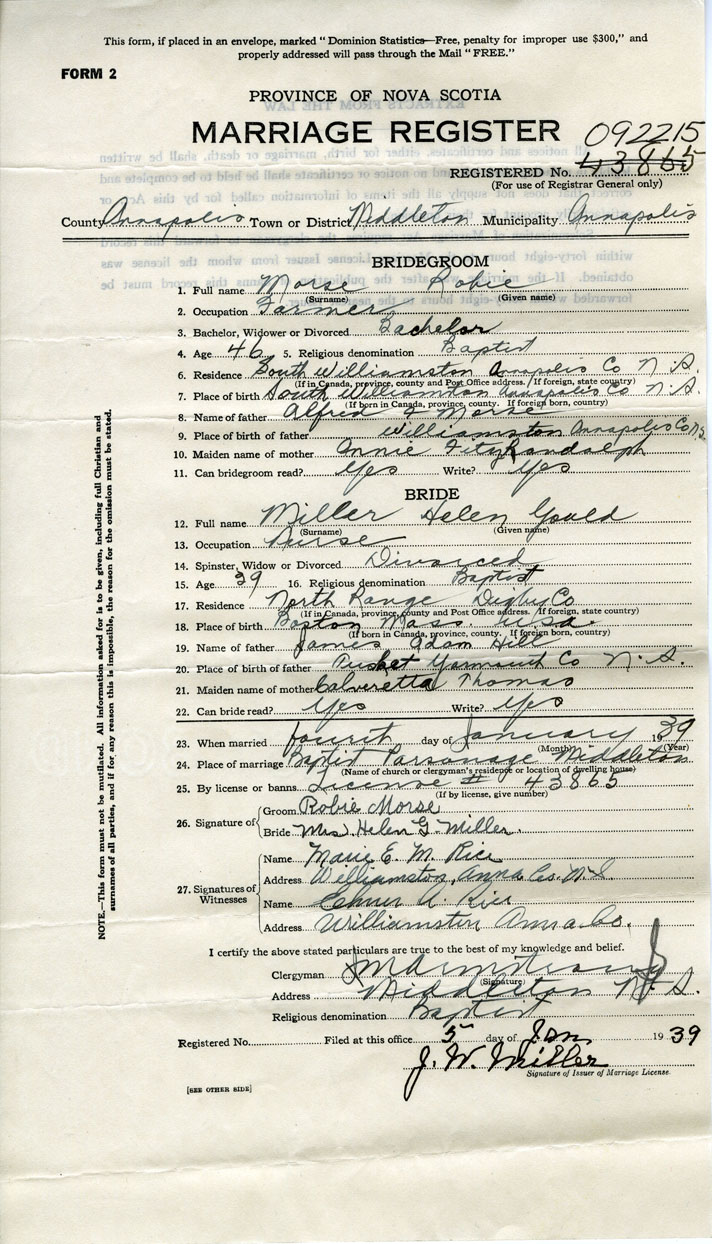 This form, if placed in an envelope, marked "Dominion Statistics—Free, penalty for improper use $300," and
properly addressed will pass through the Mail "FREE."
FORM 2
PROVINCE OF NOVA SCOTIA
MARRIAGE REGISTER
092215
REGISTERED No. 43865
(For use of Registrar General only)
County Annapolis Town or District Middleton Municipality Annapolis
BRIDEGROOM
1. Full name Morse Robie
(Surname) (Given name)
2. Occupation Farmer
3. Bachelor, Widower or Divorced Bachelor
4. Age 46 5. Religious denomination Baptist
6. Residence South Williamston Annapolis Co N.S.
(If in Canada, province, county and Post Office address. If foreign, state country)
7. Place of birth South Williamston Annapolis Co N.S.
(If born in Canada, province, county. If foreign born, country)
8. Name of father Alfred Morse
9. Place of birth of father Williamston Annapolis Co N.S.
10. Maiden name of mother Annie FitzRandolph
11. Can bridegroom read? Yes Write? Yes
BRIDE
12. Full name Miller Helen Gould
(Surname) (Given name)
13. Occupation Nurse
14. Spinster, Widow or Divorced Divorced
15. Age 39 16. Religious denomination Baptist
17. Residence North Range Digby Co
(If in Canada, province, county and Post Office address. If foreign, state country)
18. Place of birth Boston Mass. U.S.A.
(If born in Canada, province, county. If foreign born, country)
19. Name of father James Adam Hill
20. Place of birth of father Tusket Yarmouth Co N.S.
21. Maiden name of mother Calveretta Thomas
22. Can bride read? Yes Write? Yes
23. When married fourth day of January 1939
(Month) (Year)
24. Place of marriage Baptist Parsonage Middleton
(Name of church or clergyman's residence or location of dwelling house)
25. By license or banns License # 43865
(If by license, give number)
26. Signature of
Groom Robie Morse
Bride Mrs. Helen G. Miller.
27. Signatures of Witnesses
Name Marie E. M. Rice
Address Williamston, Anna. Co. N.S
Name Rice
Address Williamston Anna Co.
I certify the above stated particulars are true to the best of my knowledge and belief.
Clergyman
(Signature)
Address Middleton N.S.
Religious denomination Baptist
Registered No. Filed at this office 5 day of Jan 1939
J. W. Miller
Signature of Issuer of Marriage License
[SEE OTHER SIDE]
NOTE.—This form must not be mutilated. All information asked for is to be given, including full Christian and
surnames of all parties, and if for any reason this is impossible, the reason for the omission must be stated.